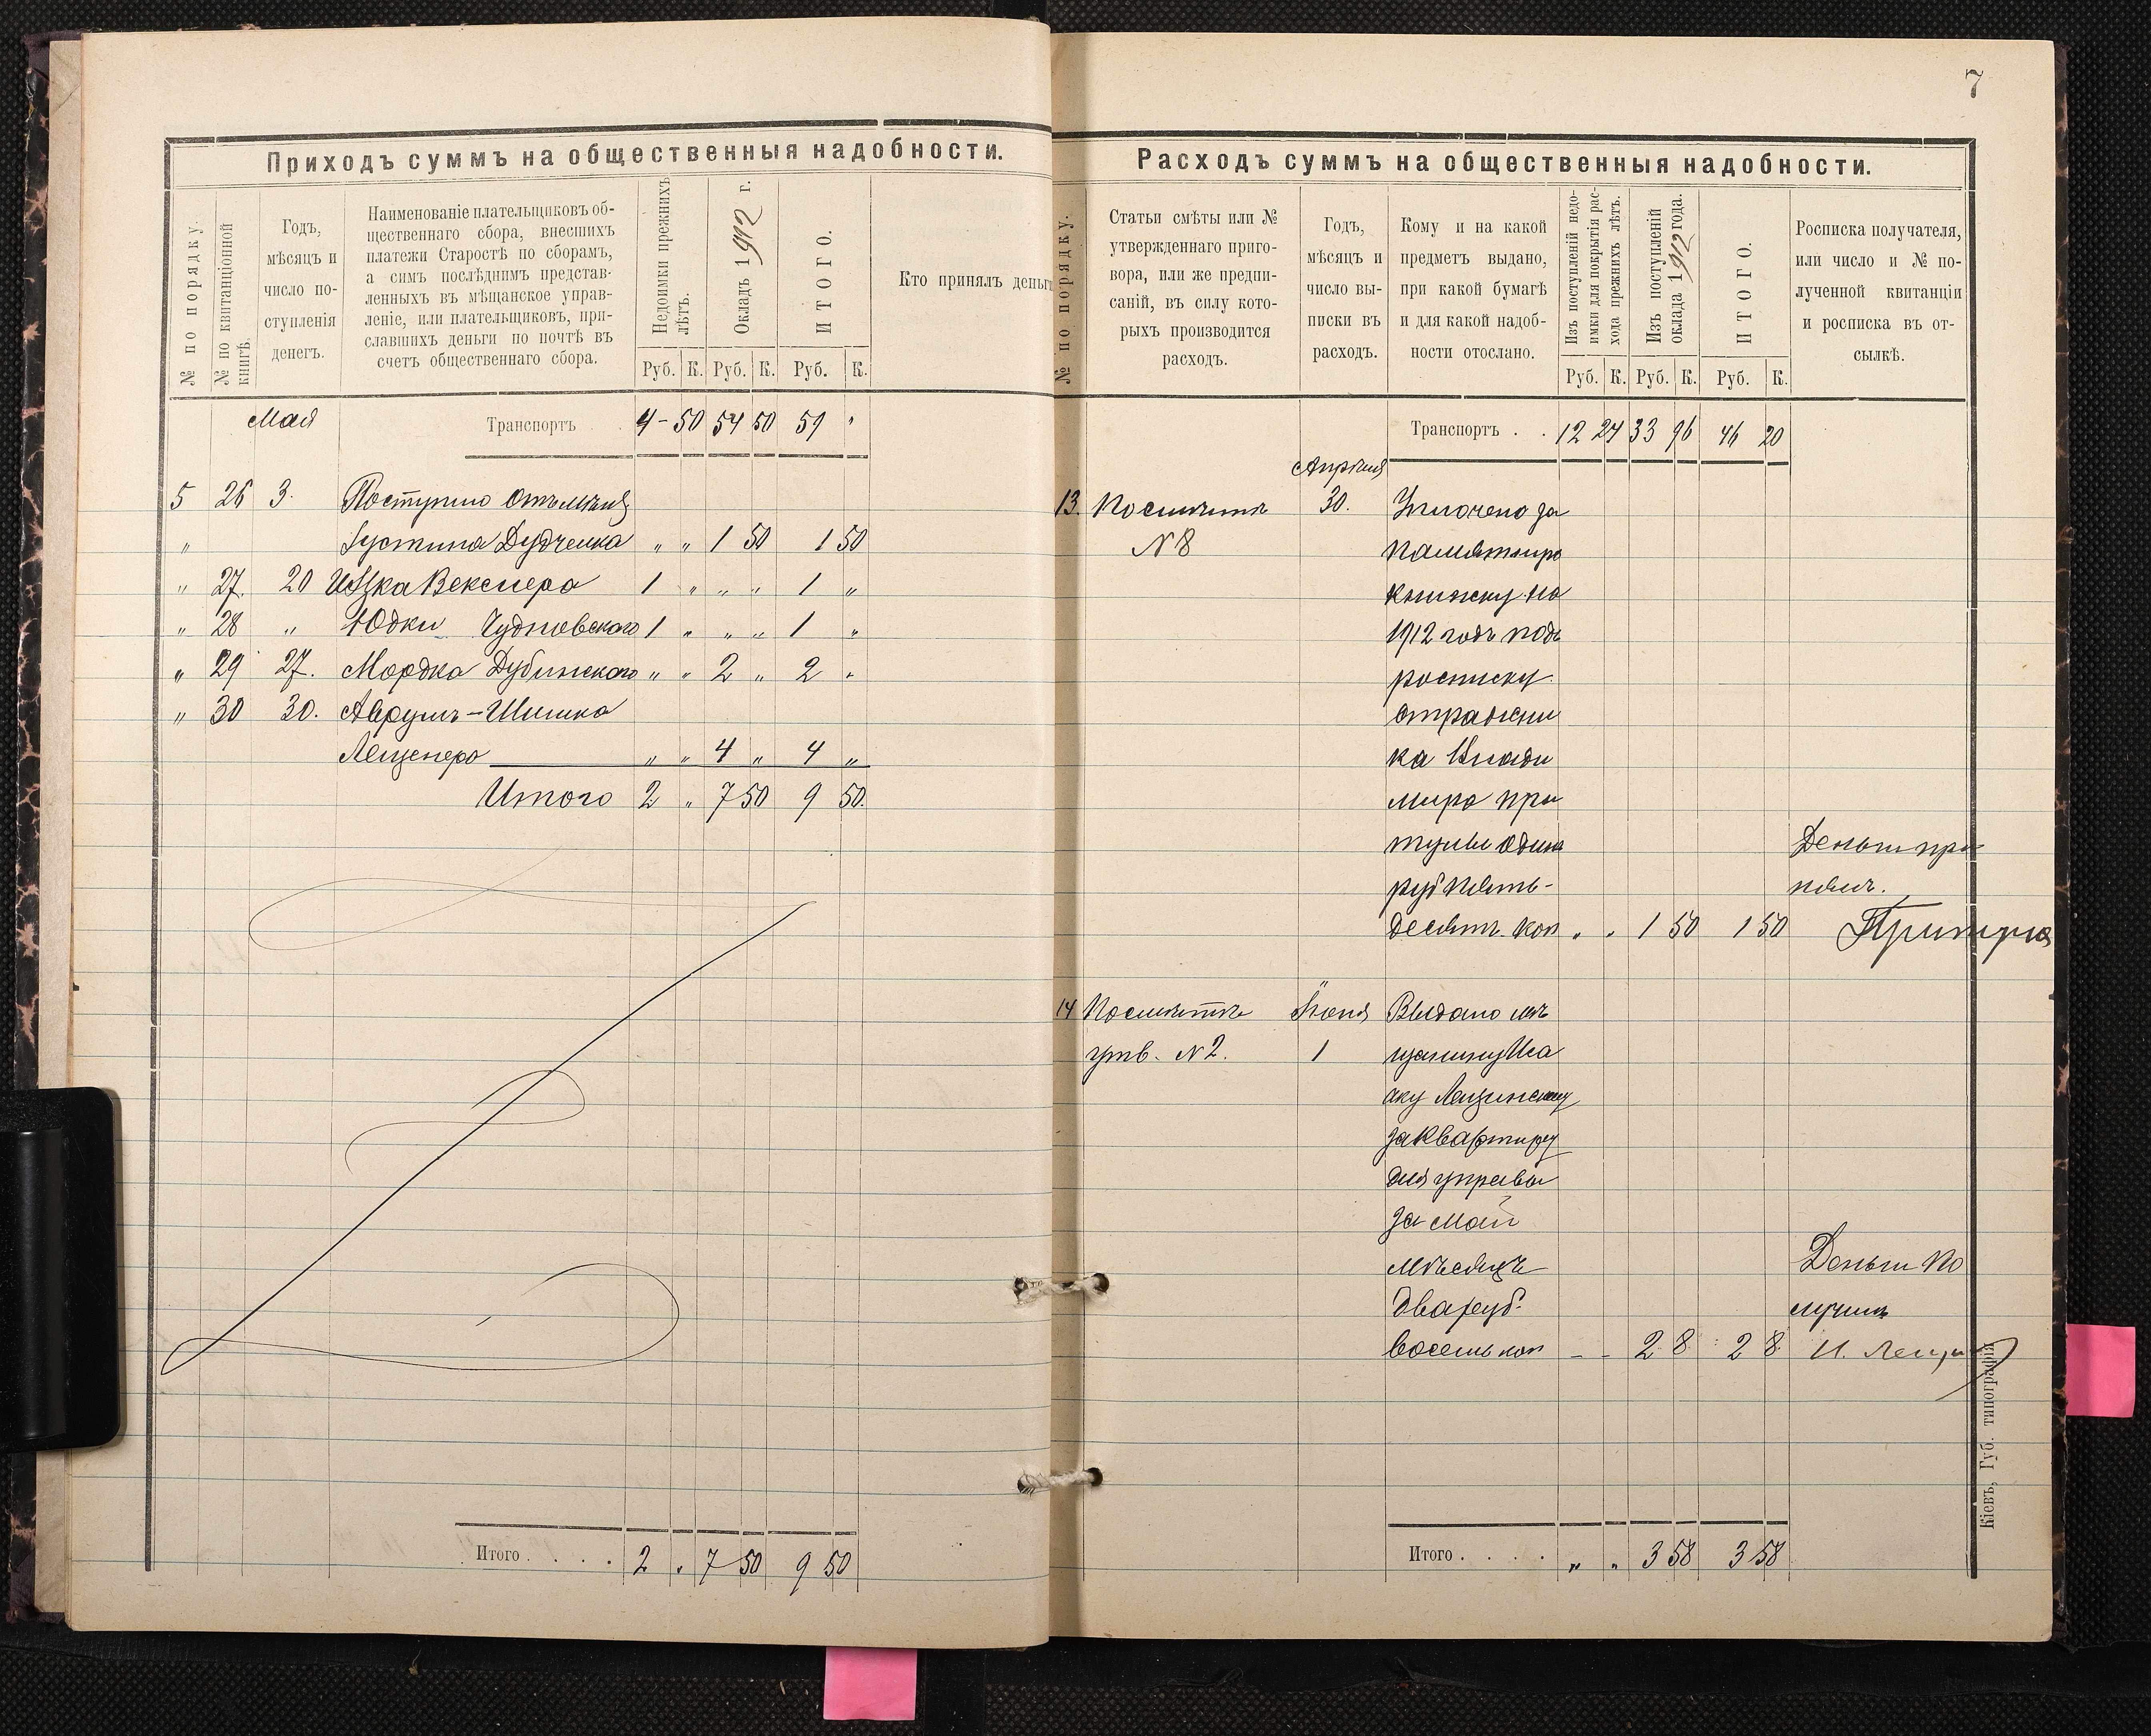 Приходъ суммъ на общественныя надобности.
№ по порядку.
№ по квитанціонной
книгѣ.
Годъ,
мѣсяцъ и
число по-
ступленія
денегъ.
Наименованіе плательщиковъ об-
щественнаго сбора, внесшихъ
платежи Старостѣ по сборамъ,
а симъ послѣднимъ представ-
ленныхъ въ мѣщанское управ-
леніе, или плательщиковъ, при-
славшихъ деньги по почтѣ въ
счетъ общественнаго сбора.
Недоимки прежнихъ
лѣтъ.
Окладъ 1912 г.
ИТОГО.
Кто принялъ деньг
Руб. К. Руб. К. Руб. К.
Мая Транспортъ 4 - 50 54 50 59 "
5 26 3. Поступило отъ мѣщ
" Іустина Дудченка " " 1 50 1 50
" 27. 20 Ицка Векслера 1 " " " 1 "
" 28 " Юдки Чудновскаго 1 " " " 1 "
" 29 27. Мордка Дубинскаго " " 2 " 2 "
" 30 30. Аврумъ-Шишка
Лещенера " " 4 " 4 "
Итого 2 " 7 50 9 50.
Итого . . . . 2 " 7 50 9 50
7
Расходъ суммъ на общественныя надобности.
№ по порядку.
Статьи смѣты или №
утвержденнаго приго-
вора, или же предпи-
саній, въ силу кото-
рыхъ производится
расходъ.
Годъ,
мѣсяцъ и
число вы-
писки въ
расходъ.
Кому и на какой
предметъ выдано,
при какой бумагѣ
и для какой надоб-
ности отослано.
Изъ поступленій недо-
имки для покрытія рас-
хода прежнихъ лѣтъ.
Изъ поступленій
оклада 1912 года.
ИТОГО.
Росписка получателя,
или число и № по-
лученной квитанціи
и росписка въ от-
сылкѣ.
Руб. К. Руб. К. Руб. К.
Транспортъ . . 12 24 33 96 46 20
Апрѣля
13. По смѣтѣ 30. Уплочено за
№ 8 памятную
книжку на
1912 годъ подъ
росписку
стражни
ка Влади
мира При
тулы один
руб пять- Деньги при
нялъ.
десят. коп " " 1 50 1 50 Притула
14 По смѣтѣ Іюня Выдано мѣ
утв. № 2. 1 щанину Иса
аку Лещинскому
за квартиру
для управы
за май
мѣсяцъ Деньги по
два руб. лучилъ
восемь коп - - 2 8 2 8 И. Лещин
Итого . . . . " " 3 58 3 58
Кіевъ, Губ. типографія